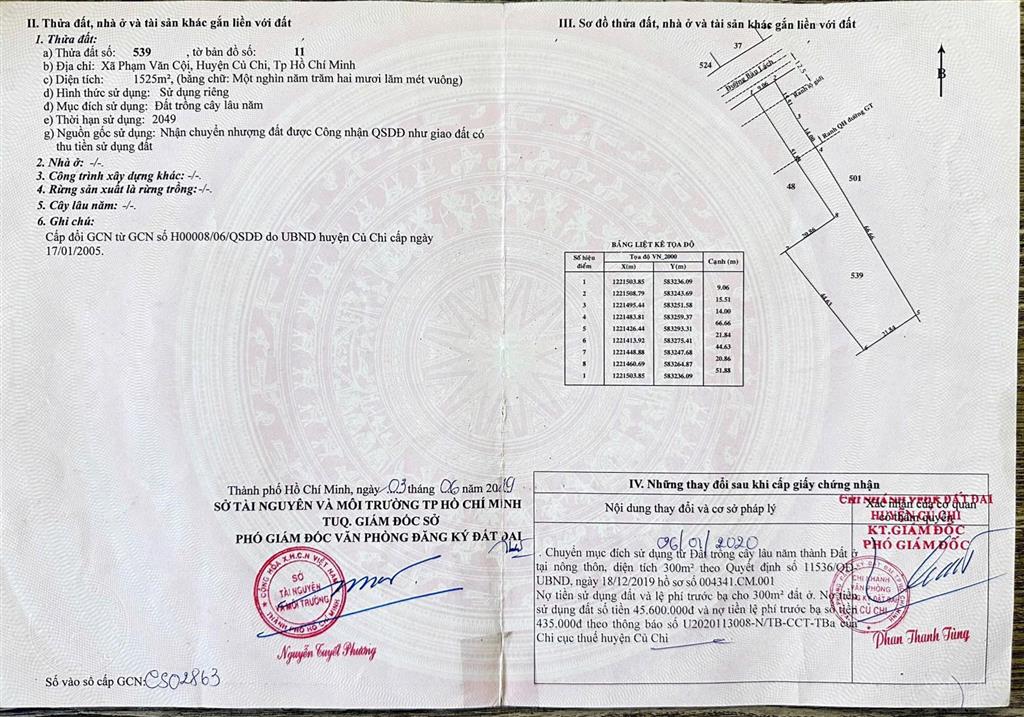 II. Thửa đất, nhà ở và tài sản khác gắn liền với đất
1. Thửa đất:
a) Thửa đất số: 539 , tờ bản đồ số: 11
b) Địa chỉ: Xã Phạm Văn Cội, Huyện Củ Chi, Tp Hồ Chí Minh
c) Diện tích: 1525m², (bằng chữ: Một nghìn năm trăm hai mươi lăm mét vuông)
d) Hình thức sử dụng: Sử dụng riêng
đ) Mục đích sử dụng: Đất trồng cây lâu năm
e) Thời hạn sử dụng: 2049
g) Nguồn gốc sử dụng: Nhận chuyển nhượng đất được Công nhận QSDĐ như giao đất có
thu tiền sử dụng đất
2. Nhà ở: -/-.
3. Công trình xây dựng khác: -/-.
4. Rừng sản xuất là rừng trồng:-/-.
5. Cây lâu năm: -/-.
6. Ghi chú:
Cấp đổi GCN từ GCN số H00008/06/QSDĐ do UBND huyện Củ Chi cấp ngày
17/01/2005.
Thành phố Hồ Chí Minh, ngày 03 tháng 06 năm 2019
SỞ TÀI NGUYÊN VÀ MÔI TRƯỜNG TP HỒ CHÍ MINH
TUQ. GIÁM ĐỐC SỞ
PHÓ GIÁM ĐỐC VĂN PHÒNG ĐĂNG KÝ ĐẤT ĐAI
CỘNG HÒA X.H.C.N VIỆT NAM
SỞ
TÀI NGUYÊN
VÀ MÔI TRƯỜNG
THÀNH PHỐ HỒ CHÍ MINH
Nguyễn Tuyết Phương
Số vào sổ cấp GCN: CS02863
III. Sơ đồ thửa đất, nhà ở và tài sản khác gắn liền với đất
37
524
Đường Bàu Lách
12.5
B
9.06
1
2
Ranh lộ giới
15.51
3
14.00
Ranh QH đường GT
4
51.88
48
501
8
20.86
7
66.66
539
44.63
5
21.84
6
BẢNG LIỆT KÊ TỌA ĐỘ
Số hiệu điểm Tọa độ VN_2000 Cạnh (m)
X(m) Y(m)
1 1221503.85 583236.09
9.06
2 1221508.79 583243.69
15.51
3 1221495.44 583251.58
14.00
4 1221483.81 583259.37
66.66
5 1221426.44 583293.31
21.84
6 1221413.92 583275.41
44.63
7 1221448.88 583247.68
20.86
8 1221460.69 583264.87
51.88
1 1221503.85 583236.09
IV. Những thay đổi sau khi cấp giấy chứng nhận
Nội dung thay đổi và cơ sở pháp lý
Xác nhận của cơ quan
có thẩm quyền
06/01/2020
. Chuyển mục đích sử dụng từ Đất trồng cây lâu năm thành Đất ở
tại nông thôn, diện tích 300m² theo Quyết định số 11536/QĐ-
UBND, ngày 18/12/2019 hồ sơ số 004341.CM.001
Nợ tiền sử dụng đất và lệ phí trước bạ cho 300m² đất ở. Nợ tiền
sử dụng đất số tiền 45.600.000đ và nợ tiền lệ phí trước bạ số tiền
435.000đ theo thông báo số U2020113008-N/TB-CCT-TBa của
Chi cục thuế huyện Củ Chi
CHI NHÁNH VPĐK ĐẤT ĐAI
HUYỆN CỦ CHI
KT.GIÁM ĐỐC
PHÓ GIÁM ĐỐC
CHI NHÁNH
VĂN PHÒNG
ĐĂNG KÝ ĐẤT ĐAI
H.CỦ CHI
Phan Thanh Tùng